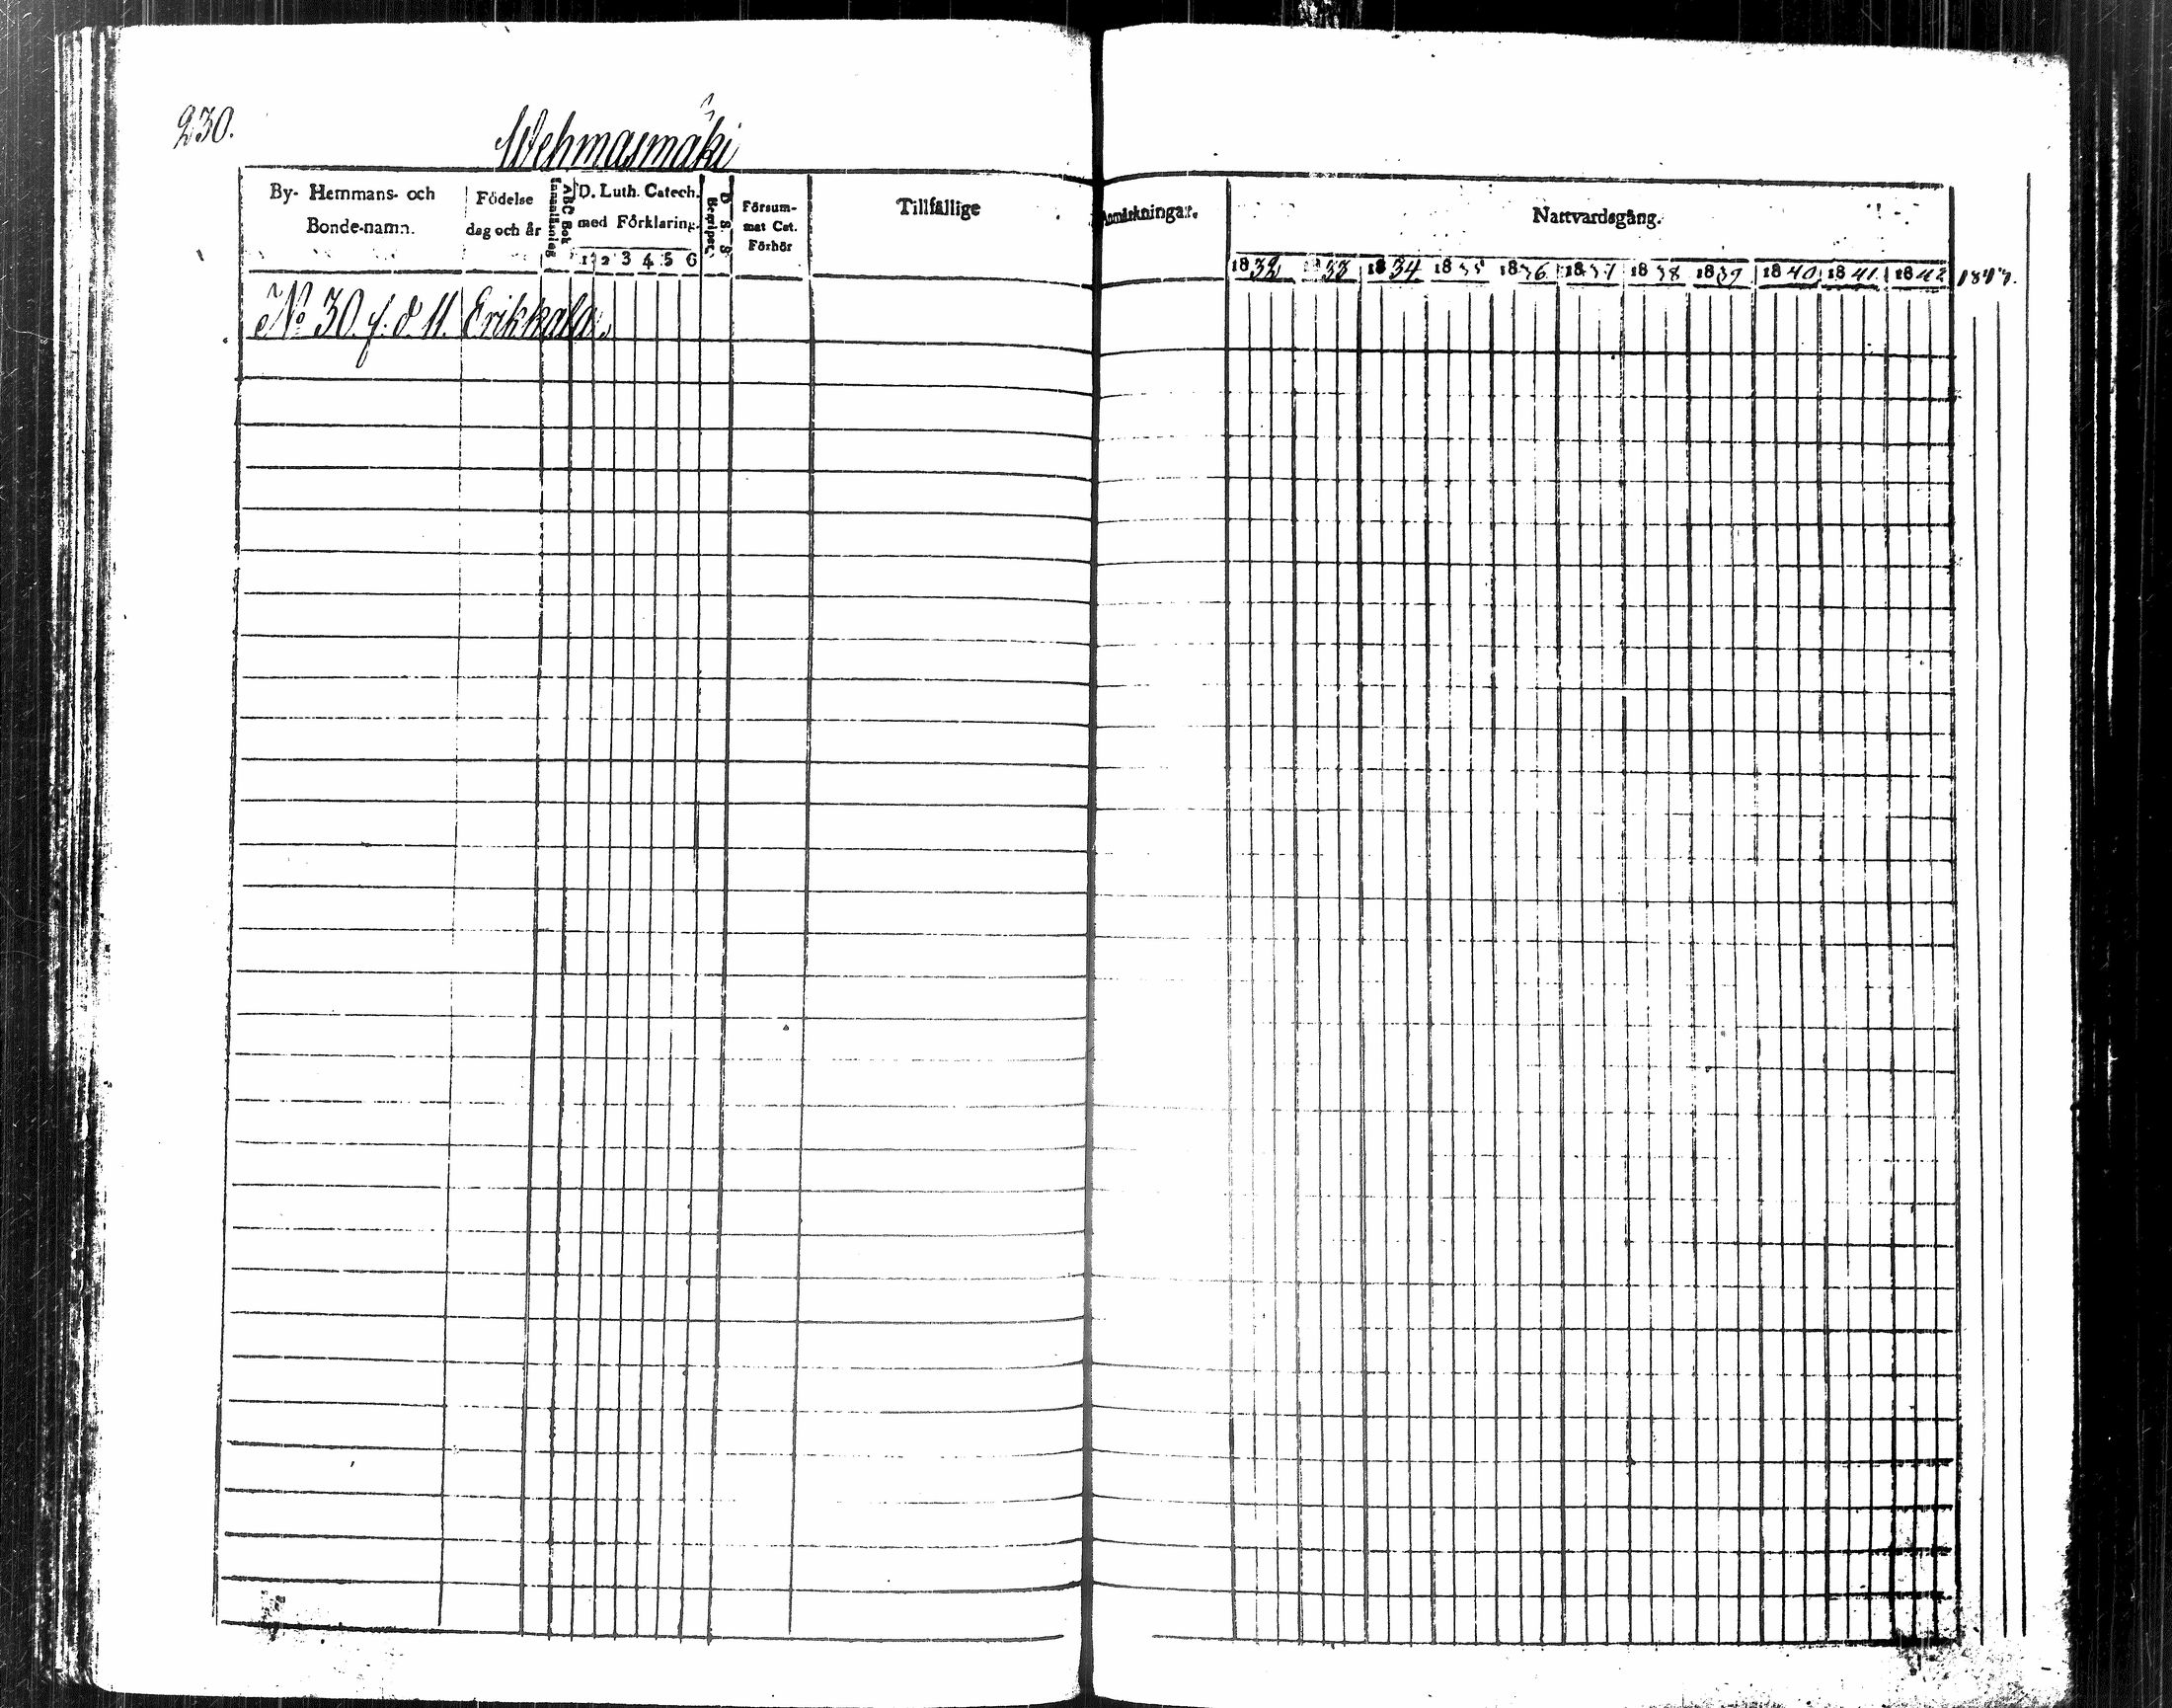 230.
Wehmasmäki
By- Hemmans- och
Bonde-namn.
Födelse
dag och år
ABC Bok
Innanläsning
D. Luth. Catech.
med Förklaring.
1 2 3 4 5 6
Begriper.
D. S. S.
Försum-
mat Cat.
Förhör
Tillfällige
Anmärkningar.
Nattvardsgång.
1832 1833 1834 1835 1836 1837 1838 1839 1840 1841 1842 1843.
No 30. f. d. 11. Erikkala.